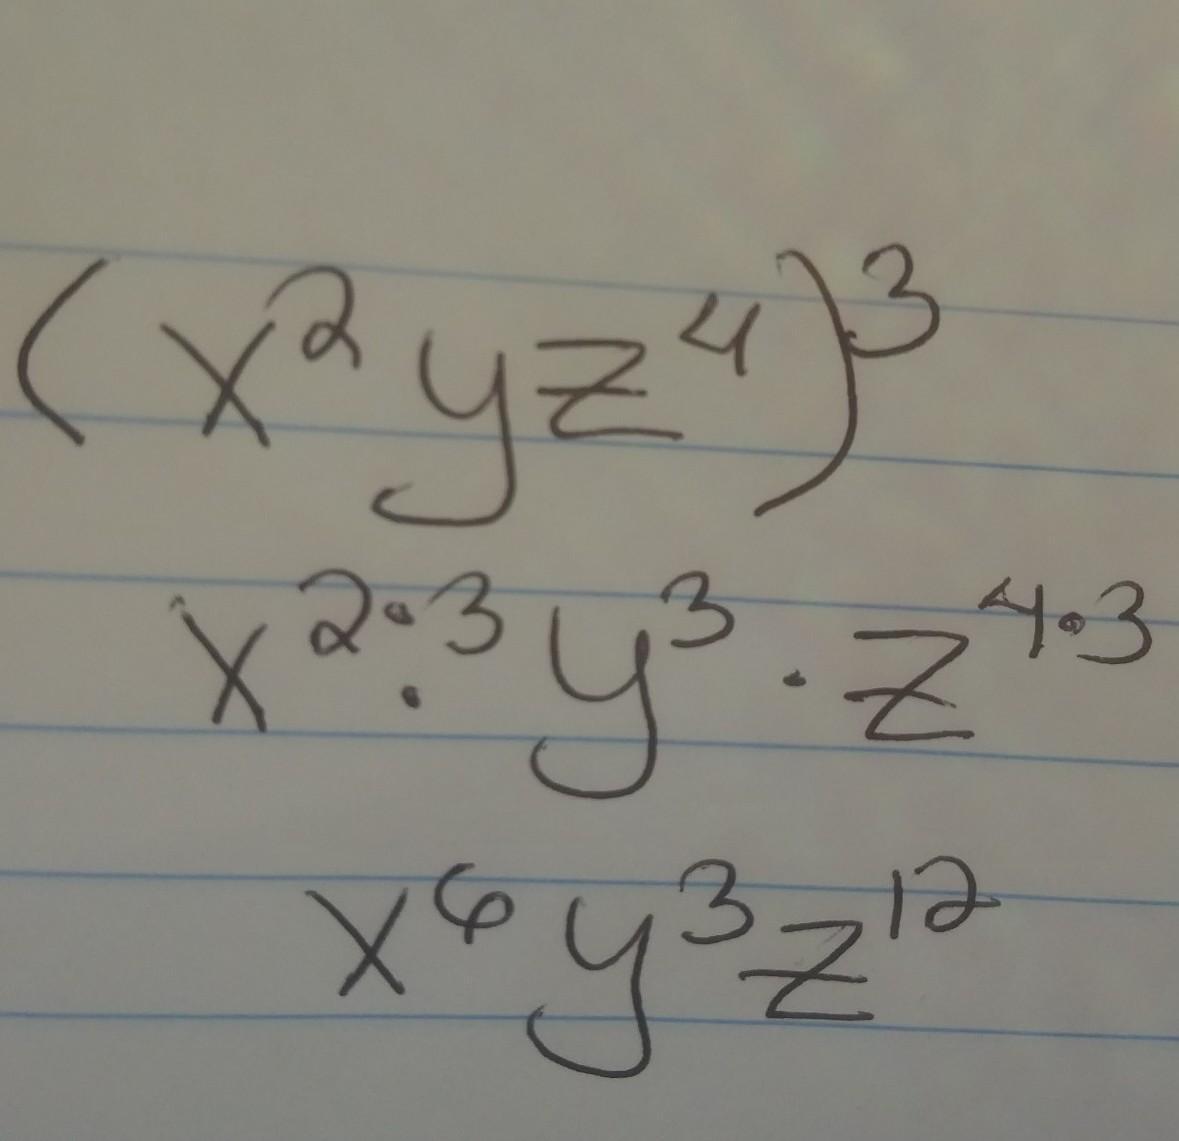 (x²yz⁴)³
x²·³ · y³ · z⁴·³
x⁶y³z¹²